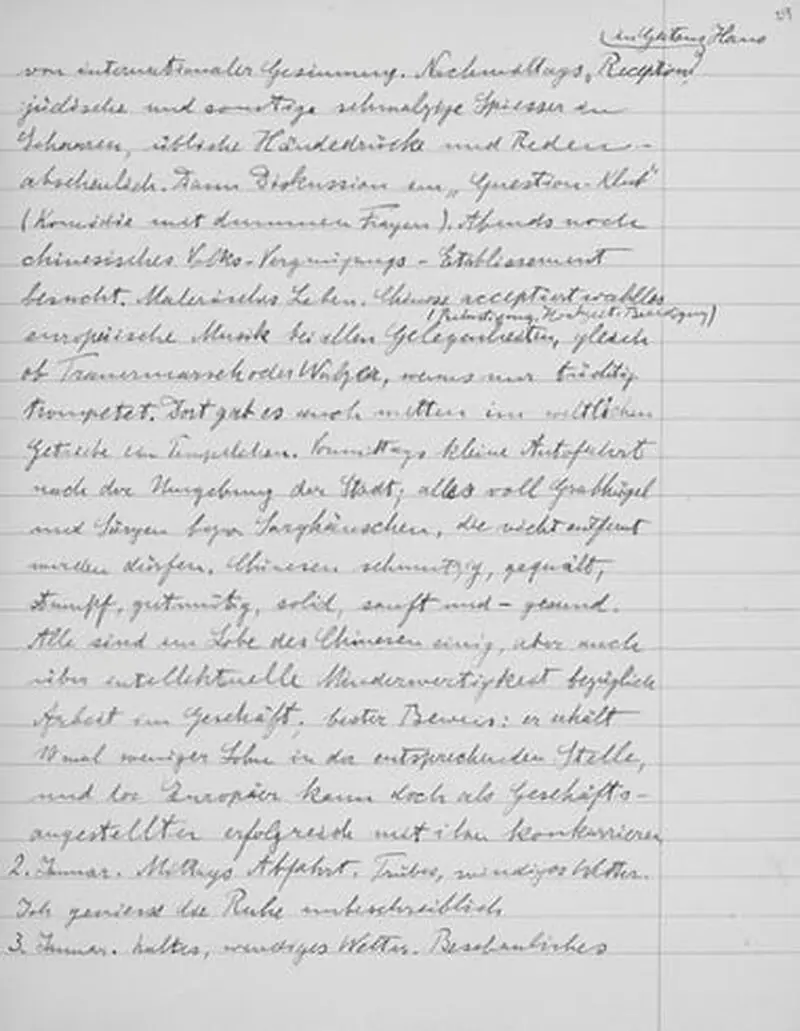 29
(in Gartens Haus
von internationaler Gesinnung. Nachmittags „Reception"
jüdische und sonstige schmalzige Spiesser in
Scharen, übliche Händedrücke und Reden –
abscheulich. Dann Diskussion im „Question-Klub"
(Komödie mit dummen Fragen). Abends noch
chinesisches Volks-Vergnügungs-Etablissement
besucht. Malerisches Leben. Chinese acceptiert wahllos
(Belustigung, Hochzeit, Beerdigung)
europäische Musik bei allen Gelegenheiten, gleich
ob Trauermarsch oder Walzer, wenns nur tüchtig
trompetet. Dort gab es auch mitten im weltlichen
Getriebe ein Tempelchen. Vormittags kleine Autofahrt
nach der Umgebung der Stadt; alles voll Grabhügel
und Särgen bezw Sarghäuschen, die nicht entfernt
werden dürfen. Chinesen schmutzig, gequält,
stumpf, gutmütig, solid, sanft und – gesund.
Alle sind im Lobe des Chinesen einig, aber auch
über intellektuelle Minderwertigkeit bezüglich
Arbeit im Geschäft; bester Beweis: er erhält
10 mal weniger Lohn in der entsprechenden Stelle,
und der Europäer kann doch als Geschäfts-
angestellter erfolgreich mit ihm konkurrieren
2. Januar. Mittags Abfahrt. Trübes, windiges Wetter.
Ich geniesse die Ruhe unbeschreiblich
3. Januar. kaltes, windiges Wetter. Beschauliches